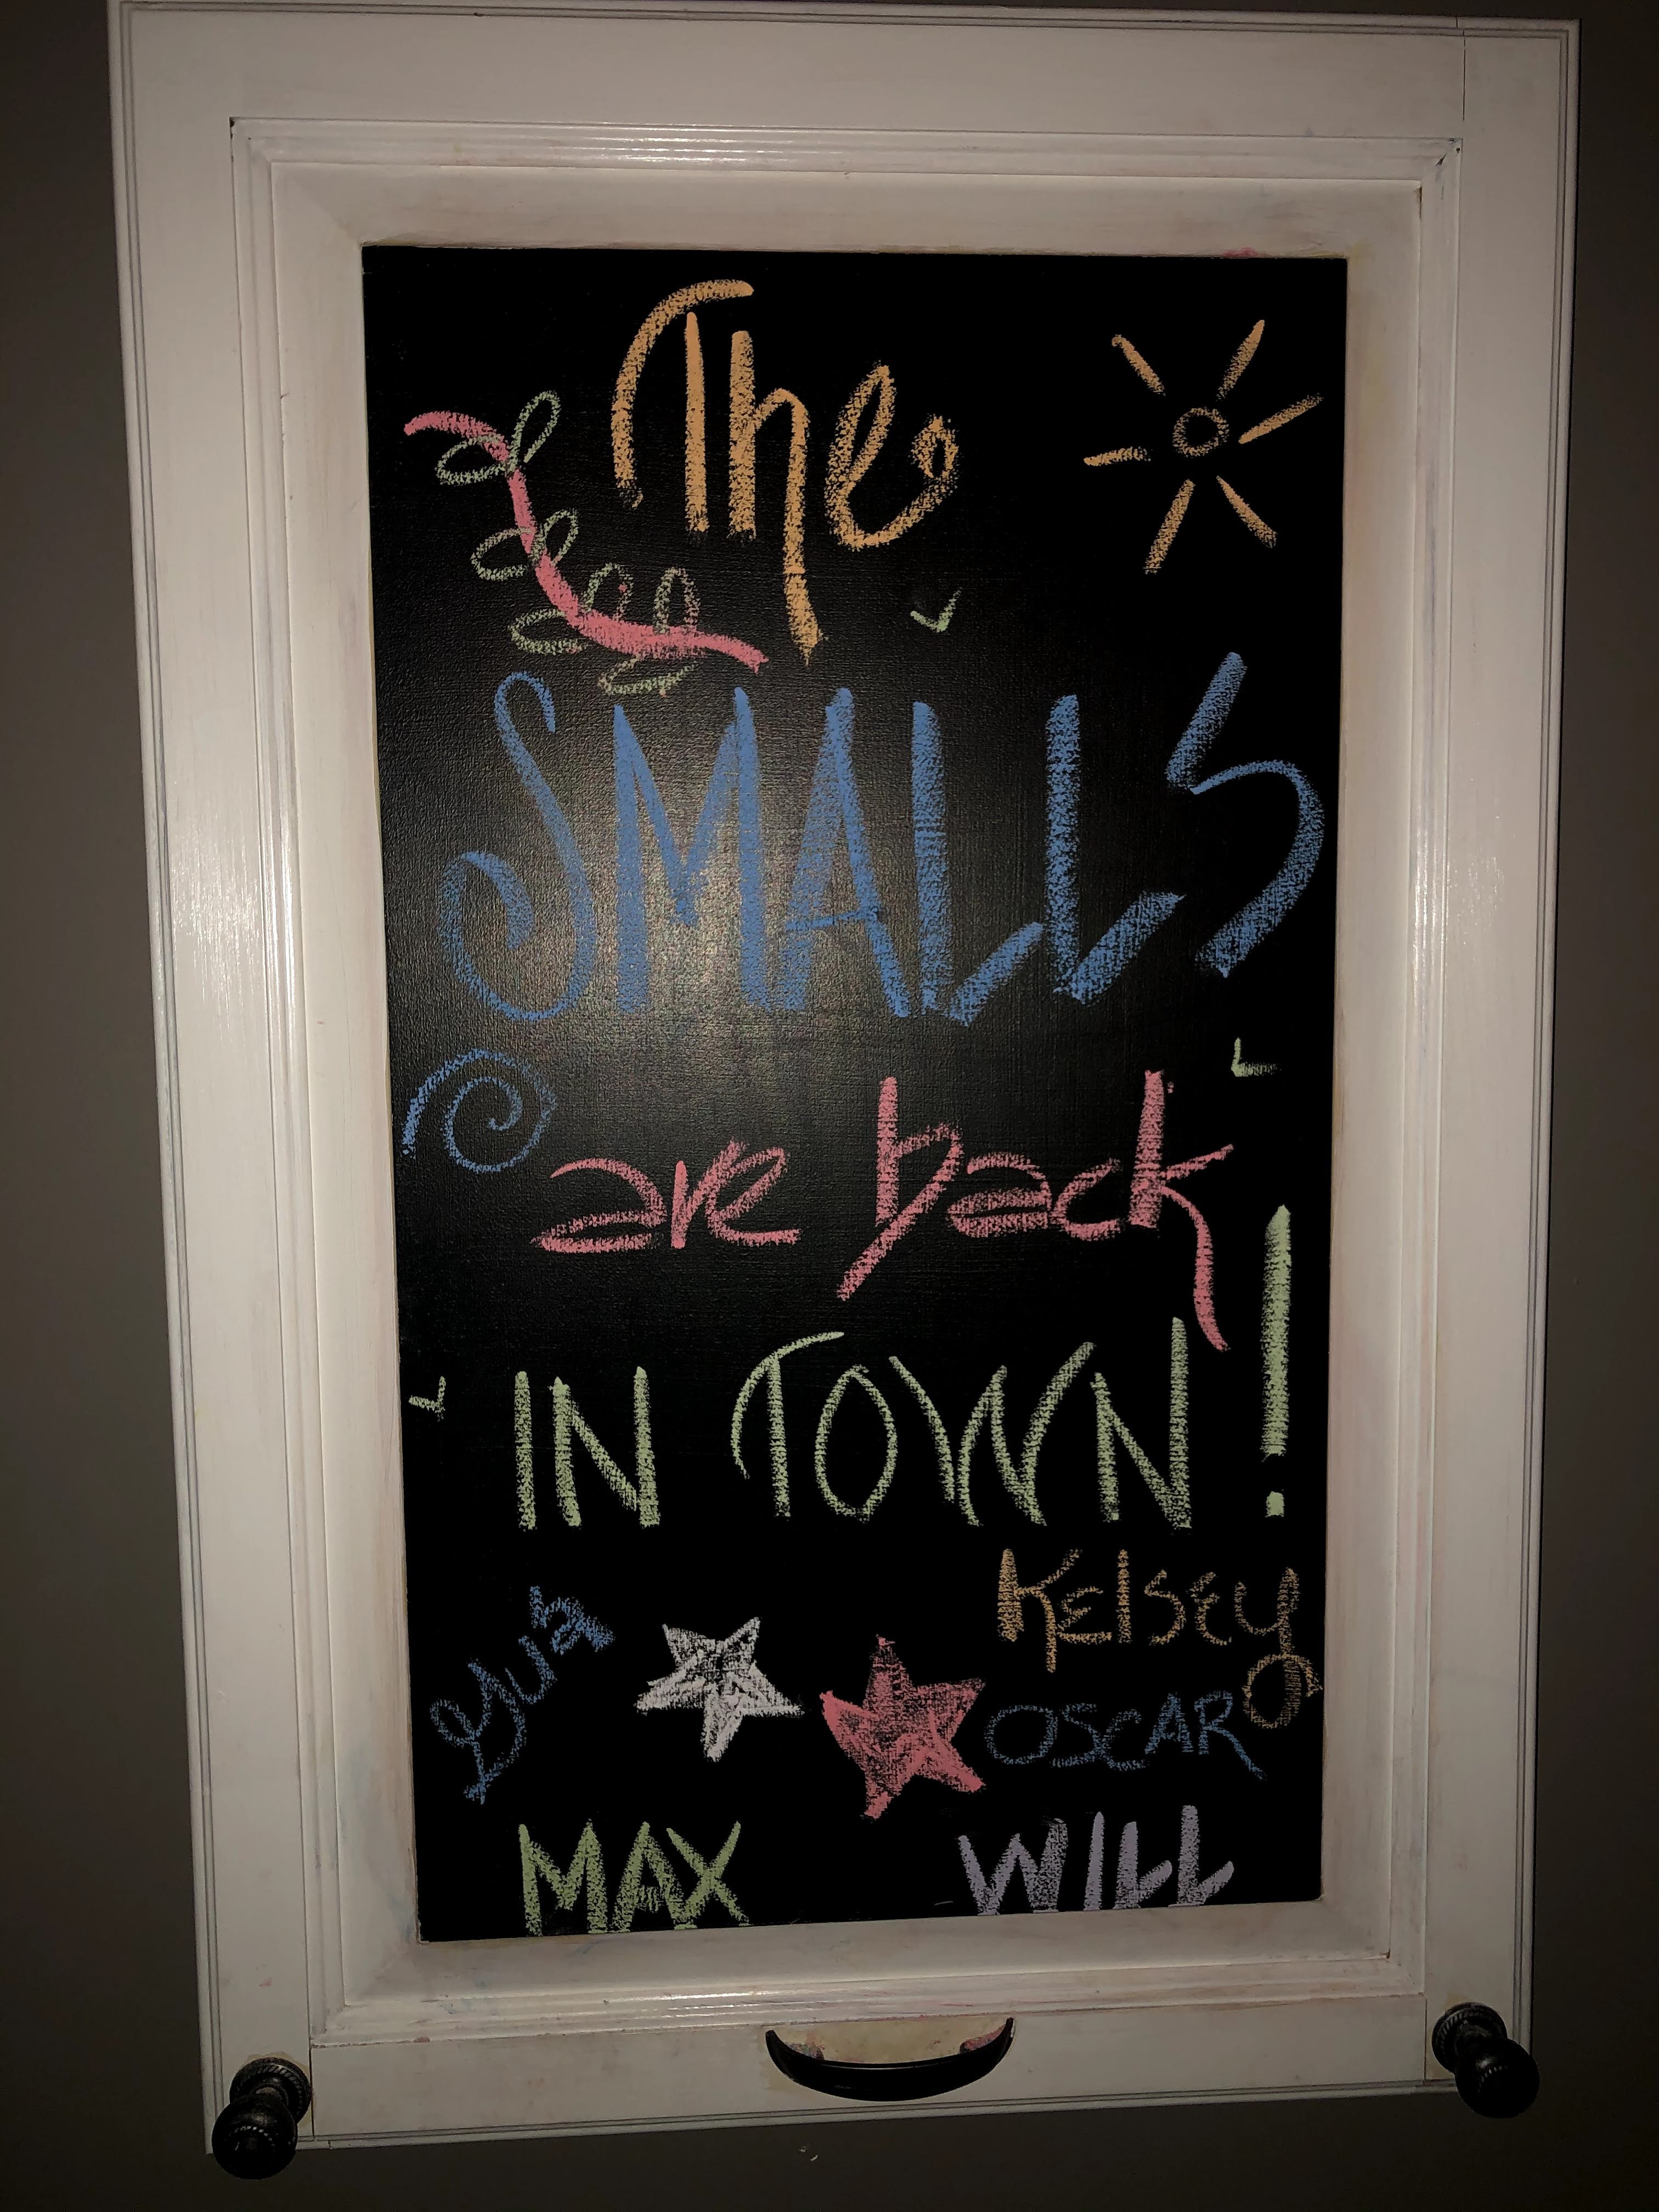 The
SMALLS
are back
IN TOWN!
Kelsey
Gus
OSCAR
MAX WILL